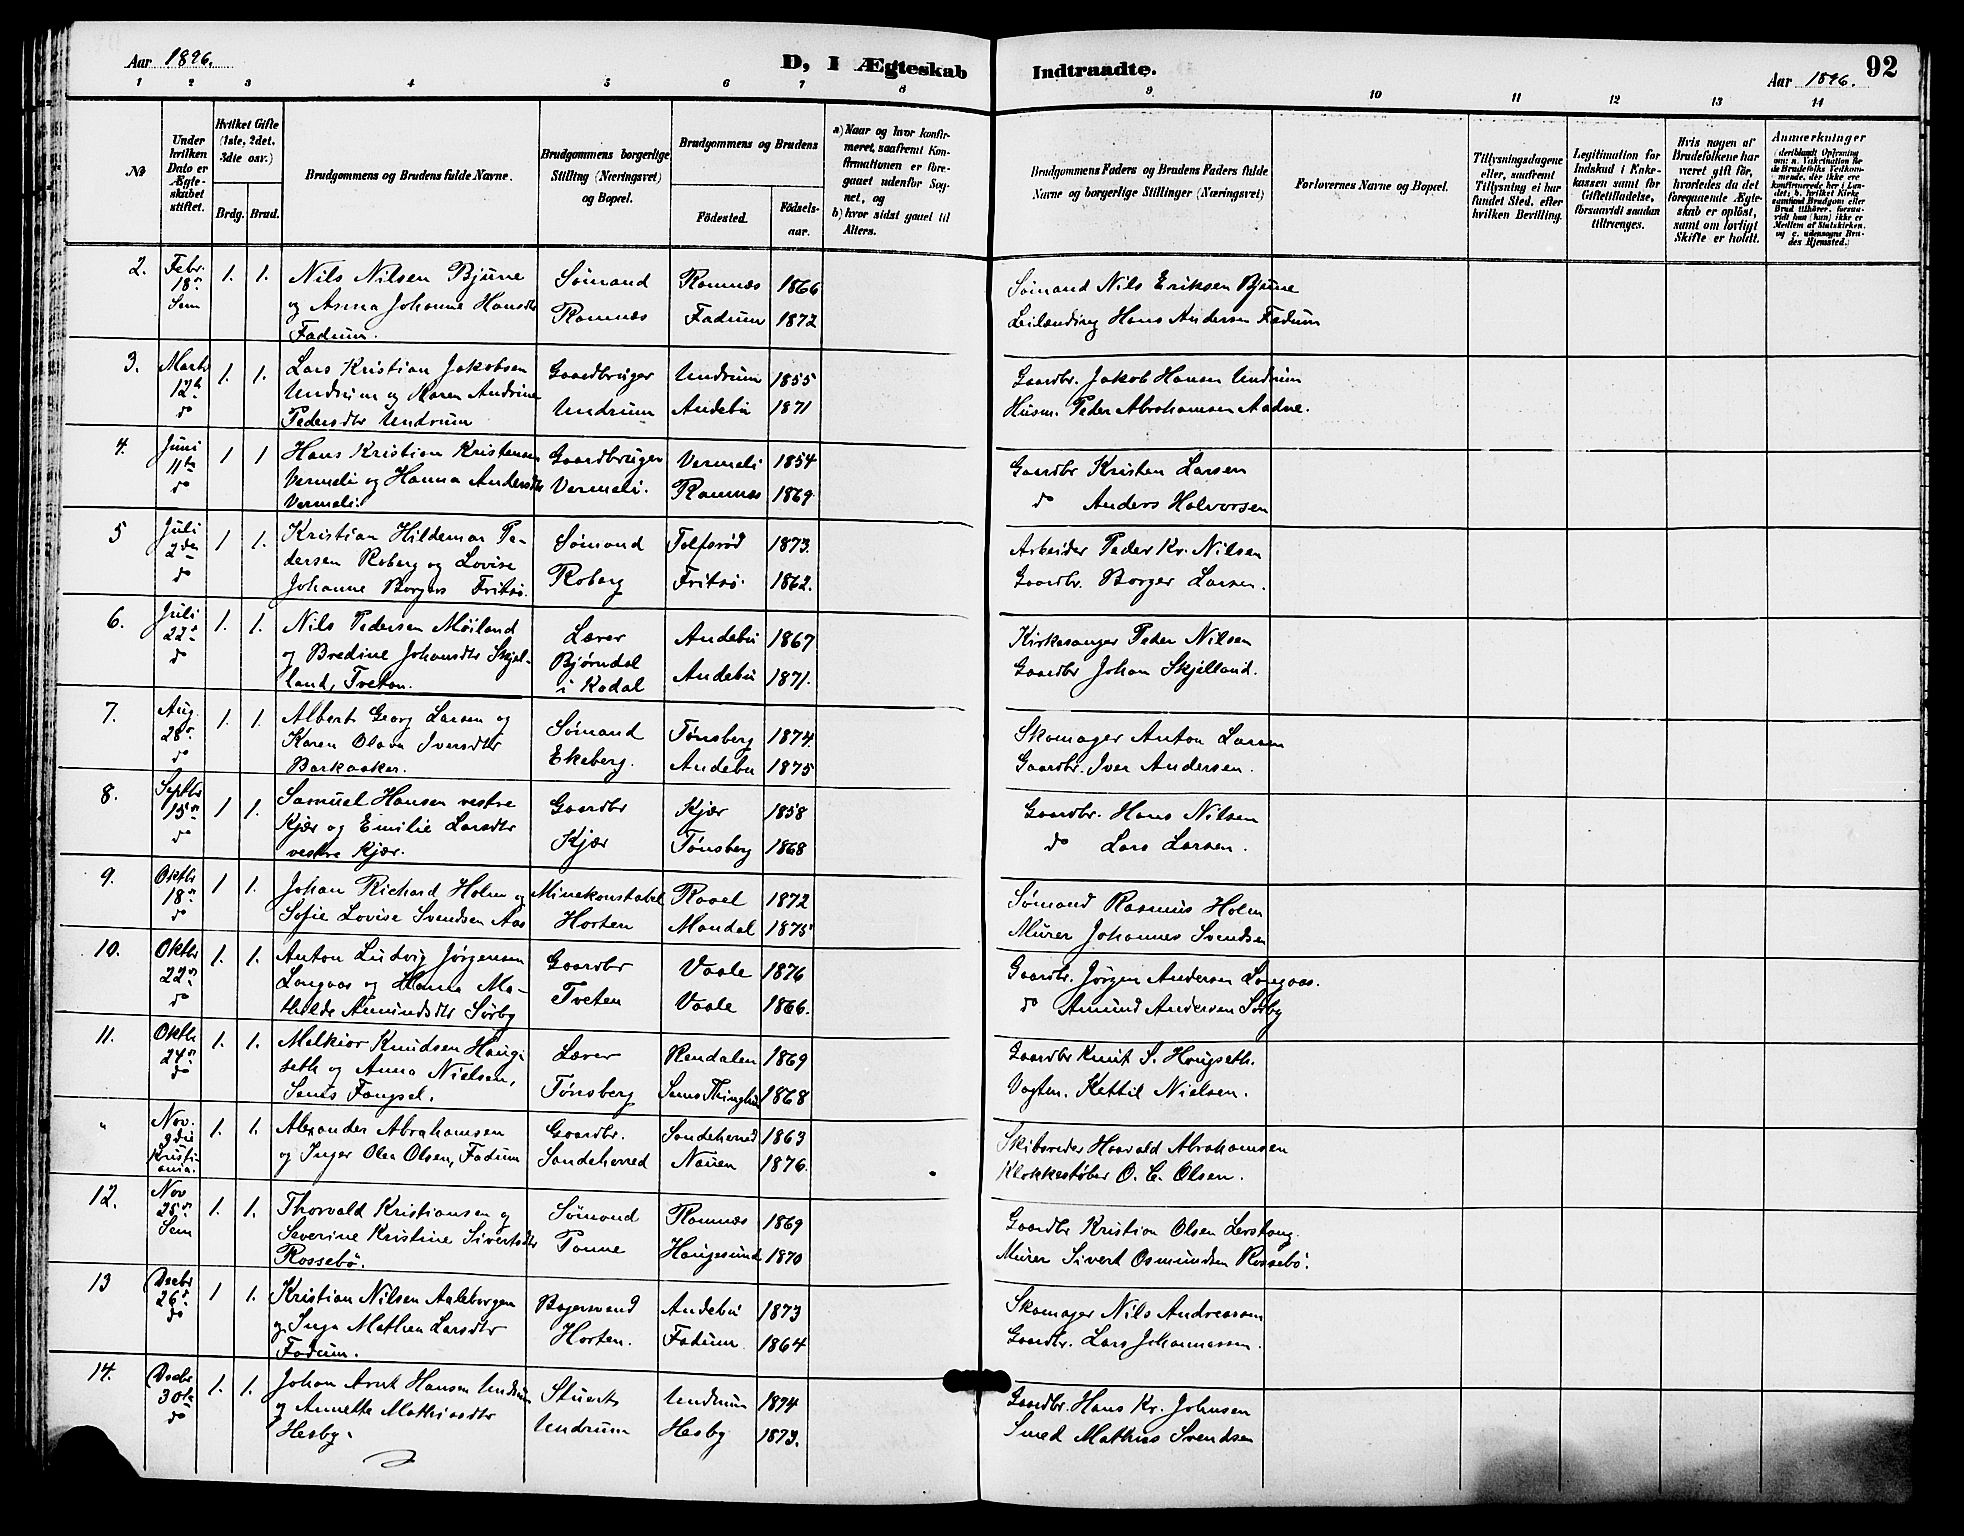 Aar 1896.
D, I Ægteskab Indtraadte.
92
Aar 1896.
1 2 3 4 5 6 7 8 9 10 11 12 13 14
No
Under hvilken Dato er Ægteskabet stiftet.
Hvilket Gifte (1ste, 2det, 3die osv.)
Brdg. Brud.
Brudgommens og Brudens fulde Navne.
Brudgommens borgerlige Stilling (Næringsvei) og Bopæl.
Brudgommens og Brudens
Fødested.
Fødselsaar.
a) Naar og hvor konfirmeret, saafremt Konfirmationen er foregaaet udenfor Sognet, og
b) hvor sidst gaaet til Alters.
Brudgommens Faders og Brudens Faders fulde Navne og borgerlige Stillinger (Næringsvei)
Forlovernes Navne og Bopæl.
Tillysningsdagene eller, saafremt Tillysning ei har fundet Sted, efter hvilken Bevilling.
Legitimation for Indskud i Enkekassen samt for Giftetilladelse, forsaavidt saadan tiltrænges.
Hvis nogen af Brudefolkene har været gift før, hvorledes da det foregaaende Ægteskab er opløst, samt om lovligt Skifte er holdt.
Anmerkninger (deriblandt Oplysning om: a. Vakcination for de Brudefolks Vedkommende, der ikke ere konfirmerede her i Landet; b. hvilket Kirkesamfund Brudgom eller Brud tilhører, forsaavidt han (hun) ikke er Medlem af Statskirken, og c. udensogns Brudes Hjemsted.)
2. Febr. 18de Sem 1. 1. Nils Nilsen Bjune Sømand Ramnæs 1866 Sømand Nils Eriksen Bjune
og Anna Johanne Hansdtr Ramnæs Fadum 1872 Leilænding Hans Andersen Fadum
Fadum.
3. Marts 12te do 1. 1. Lars Kristian Jakobsen Gaardbruger Undrum 1855 Gaardbr. Jakob Hansen Undrum
Undrum og Karen Andrine Undrum Andebu 1871 Husm. Peder Abrahamsen Aadne.
Pedersdtr Undrum
4. Juni 11te do 1 1 Hans Kristian Kristensen Gaardbruger Vermeli 1854 Gaardbr Kristen Larsen
Vermeli og Hanna Andersdtr Vermeli. Ramnæs 1869. do Anders Halvorsen
Vermeli.
5 Juli 2den do 1 1. Kristian Hildemar Pe- Sømand Tolfsrød 1873. Arbeider Peder Kr. Nilsen
dersen Roberg og Lovise Roberg Fritsø. 1862. Gaardbr. Borger Larsen.
Johanne Borgers Fritsø.
6. Juli 22de do 1. 1. Nils Pedersen Møiland Lærer Andebu 1867 Kirkesanger Peder Nilsen
og Bredine Johansdtr Skjel- Bjørndal Andebu 1871. Gaardbr Johan Skjelland.
land, Tveton. i Kodal
7. Aug. 28de do 1. 1. Albert Georg Larsen og Sømand Tønsberg 1874. Skomager Anton Larsen
Karen Olava Iversdtr Ekeberg. Andebu 1875 Gaardbr. Iver Andersen.
Barkaaker.
8. Septbr 15de do 1 1. Samuel Hansen vestre Gaardbr Kjær 1858 Gaardbr. Hans Nilsen
Kjær og Emilie Larsdtr Kjær Tønsberg 1868 do Lars Larsen.
vestre Kjær.
9. Oktbr 18de do 1 1. Johan Richard Holm og Minekonstabel Ravel 1872 Sømand Rasmus Holm
Sofie Lovise Svendsen Aas Horten Mandal 1875 Murer Johannes Svendsen
10. Oktbr 22de do 1. 1. Anton Ludvig Jørgensen Gaardbr Vaale 1876 Gaardbr. Jørgen Andersen Langaas.
Langaas og Hanna Ma- Tveten Vaale 1866. do Amund Andersen Sørby
thilde Amundsdtr Sørby
11. Oktbr 24de do 1. 1. Melkior Knudsen Haug- Lærer Rendalen 1869 Gaardbr Knut S. Haugseth.
seth og Anna Nielsen, Tønsberg Sems Thinghus 1868 Vagtm. Kettil Nielsen.
Sems Fængsel.
" Nov. 9die Kristiania. 1. 1. Alexander Abrahamsen Gaardbr. Sandeherred 1863 Skibsreder Haavald Abrahamsen
og Inger Olea Olsen, Fadum Sandeherred Nauen 1876. Klokkestøber O. C. Olsen.
12. Nov 25de Sem 1. 1. Thorvald Kristiansen og Sømand Ramnæs 1869 Gaardbr Kristian Olsen Lerstang.
Severine Kristine Sivertsdtr Haugesund 1870 Murer Sivert Osmundsen Rossebø.
Rossebø.
13 Decbr 26de do 1 1. Kristian Nilsen Aaleborgen Bagersvend Andebu 1873 Skomager Nils Andreassen
og Inga Mathea Larsdtr Horten. Fadum. 1864 Gaardbr. Lars Johannessen.
Fadum.
14. Decbr 30te do 1. 1. Johan Arnt Hansen Undrum Stuert Undrum 1874 Gaardbr. Hans Kr. Johnsen
og Annette Mathiasdtr Undrum Hesby 1873. Smed Mathias Svendsen
Hesby.